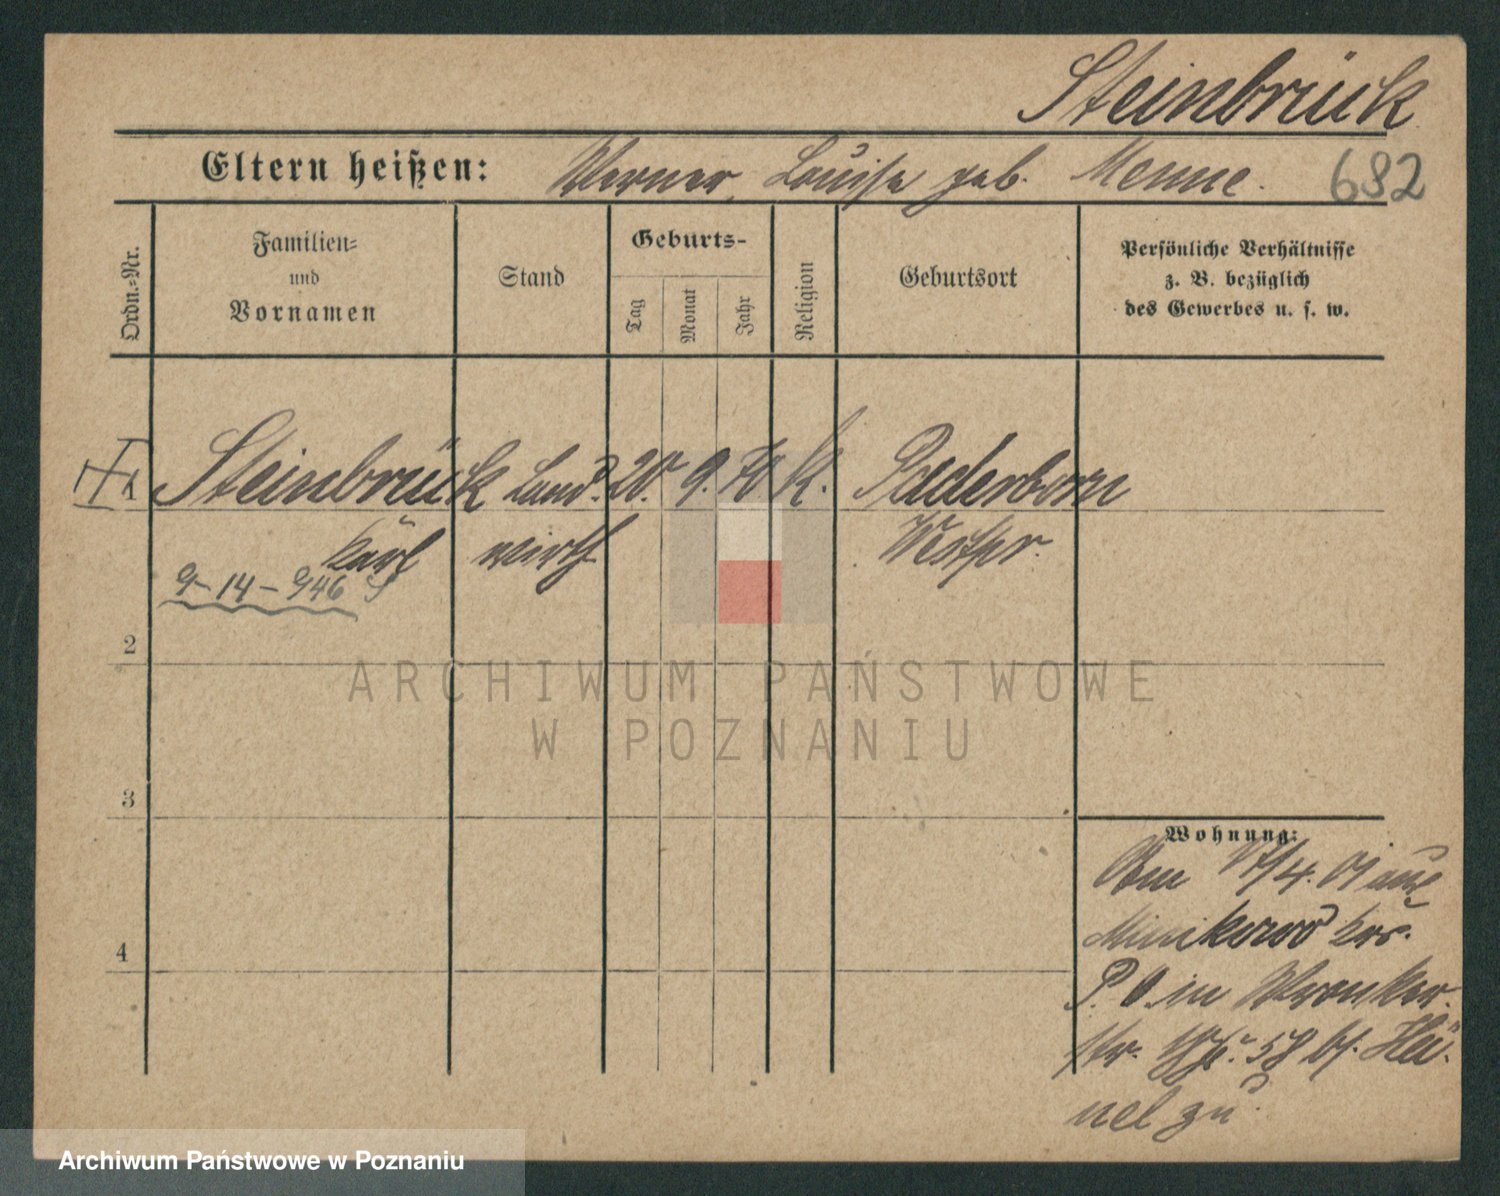 Steinbrück
Eltern heißen: Werner, Louise geb. Menne. 682
Ordn.-Nr.
Familien-
und
Vornamen
Stand
Geburts-
Tag
Monat
Jahr
Religion
Geburtsort
Persönliche Verhältnisse
z. B. bezüglich
des Gewerbes u. s. w.
1 Steinbrück Land- 20. 9. 70 K. Paderborn
Karl wirth Westpr.
9-14-946
2
3
4
Wohnung:
Am 17/4. 01 aus
Minikowo Krs.
P. O. in Wronker-
str. 58 bf.
zu
ARCHIWUM PAŃSTWOWE
W POZNANIU
Archiwum Państwowe w Poznaniu